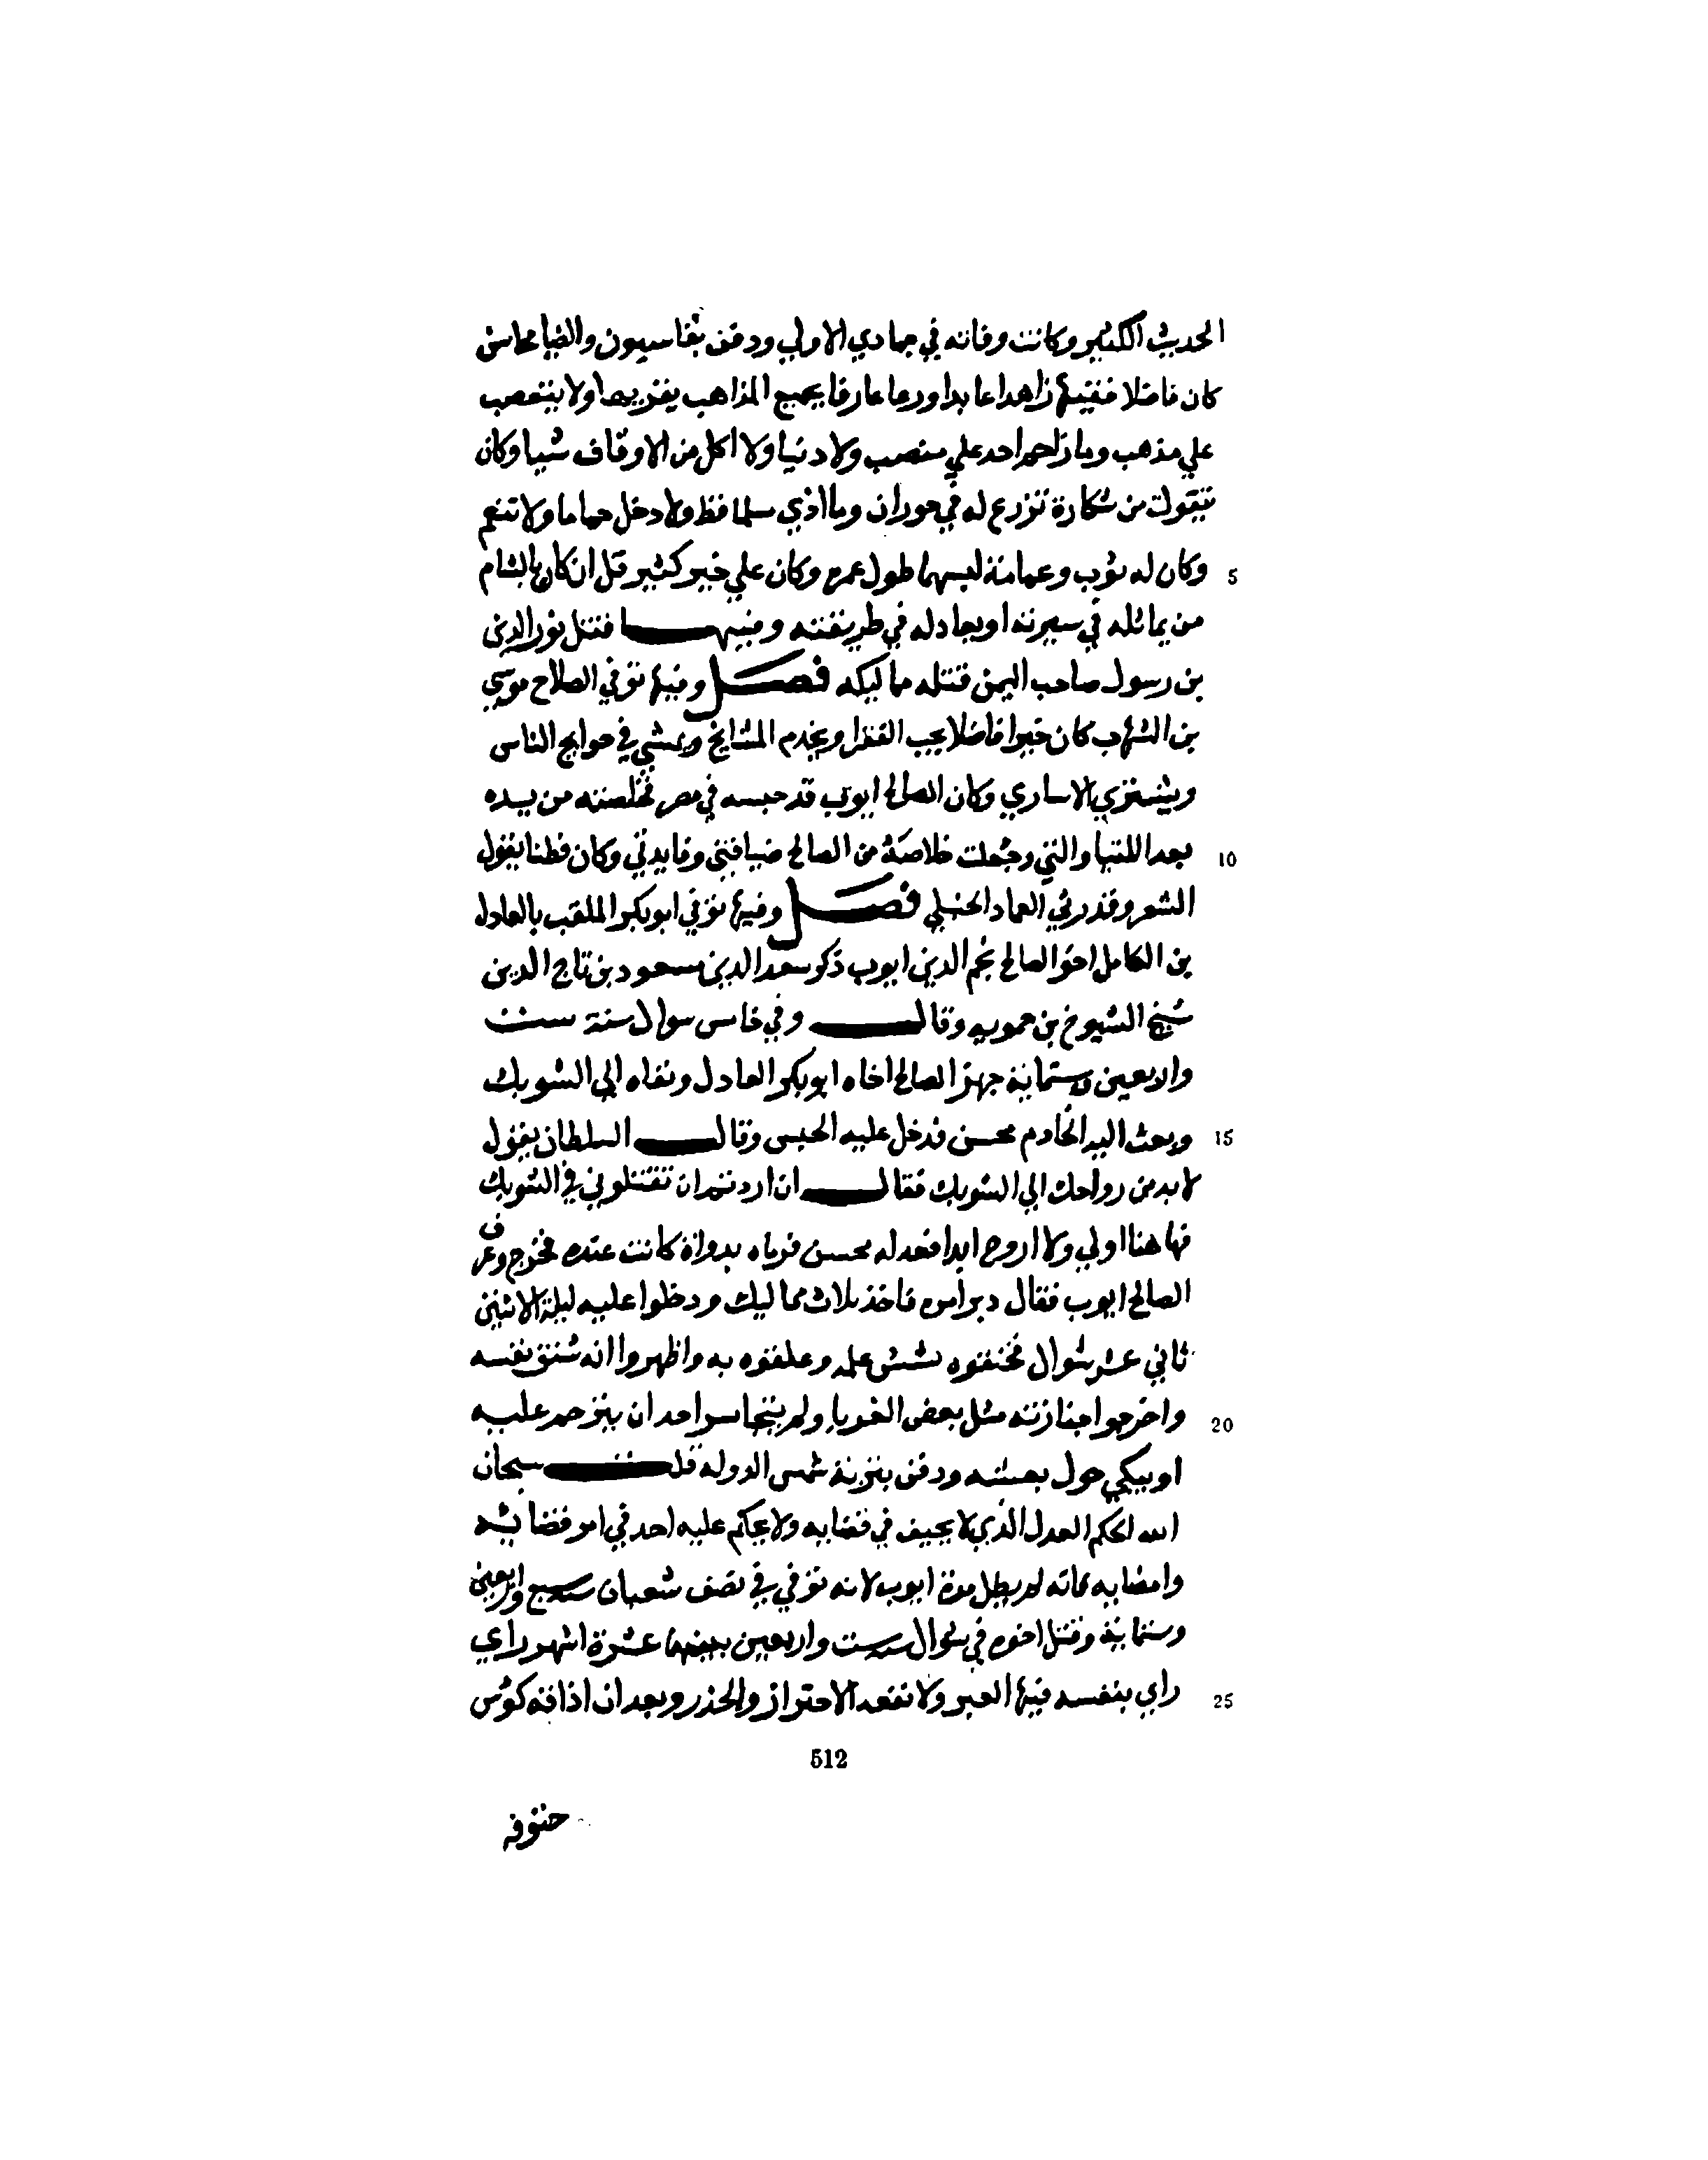 الحديث الكثير وكانت وفاته في جمادي الاولي ودفن بقاسيون والضيا محاسن
كان فاضلا فقيها زاهدا عابدا ورعا عارفا بجميع المذاهب يقريها ولا يتعصب
علي مذهب وما زاحم احد علي منصب ولا دنيا ولا اكل من الاوقاف شيا وكان
يتقوت من شكارة تزرع له في حوران وما اذي مسلما قط ولا دخل حماما ولا تنعم
5 وكان له ثوب وعمامة لبسهما طول عمره وكان علي خير كثير قل ان كان بالشام
من يماثله في سيرته او يجادله في طريقته وفيها قتل نور الدين
بن رسول صاحب اليمن قتله مماليكه فصل وفيها توفي الصلاح موسي
بن الشهاب كان خيرا فاضلا يحب الفقرا ويخدم المشايخ ويمشي في حوايج الناس
ويشتري الاساري وكان الصالح ايوب قد حبسه في مصر فخلصته من يده
10 بعد اللتيا والتي وجعلت خلاصه من الصالح ضيافتي وفايدتي وكان فطنا يقول
الشعر وقد رثي العماد الحنبلي فصل وفيها توفي ابو بكر الملقب بالعادل
بن الكامل اخو الصالح نجم الدين ايوب ذكر سعد الدين مسعود بن تاج الدين
شيخ الشيوخ بن حمويه وقال وفي خامس شوال سنة ست
واربعين وستماية جهز الصالح اخاه ابو بكر العادل ونفاه الي الشوبك
15 وبعث اليه الخادم محسن فدخل عليه الحبس وقال السلطان يقول
لا بد من رواحك الي الشوبك فقال ان اردتم ان تقتلوني في الشوبك
فهاهنا اولي ولا اروح ابدا فعذله محسن فرماه بدواة كانت عنده فخرج وعرف
الصالح ايوب فقال دبر امره فاخذ ثلاث مماليك ودخلوا عليه ليلة الاثنين
ثاني عشر شوال فخنقوه بشش علم وعلقوه به واظهروا انه شنق نفسه
20 واخرجوا جنازته مثل بعض الغربا ولم يتجاسر احد ان يترحم عليه
او يبكي حول نعشه ودفن بتربة شمس الدولة قلت سبحان
الله الحكم العدل الذي لا يحيف في قضايه ولا يحكم عليه احد في امر قضايه
وامضايه فانه لم يطل مدة ايوب لانه توفي في نصف شعبان سنة سبع واربعين
وستماية وقتل اخوه في شوال سنة ست واربعين بينهما عشرة اشهر راي
25 راي بنفسه فيها العبر ولا نفعه الاحتراز والحذر وبعد ان اذاقته كوس
512
حتوفه